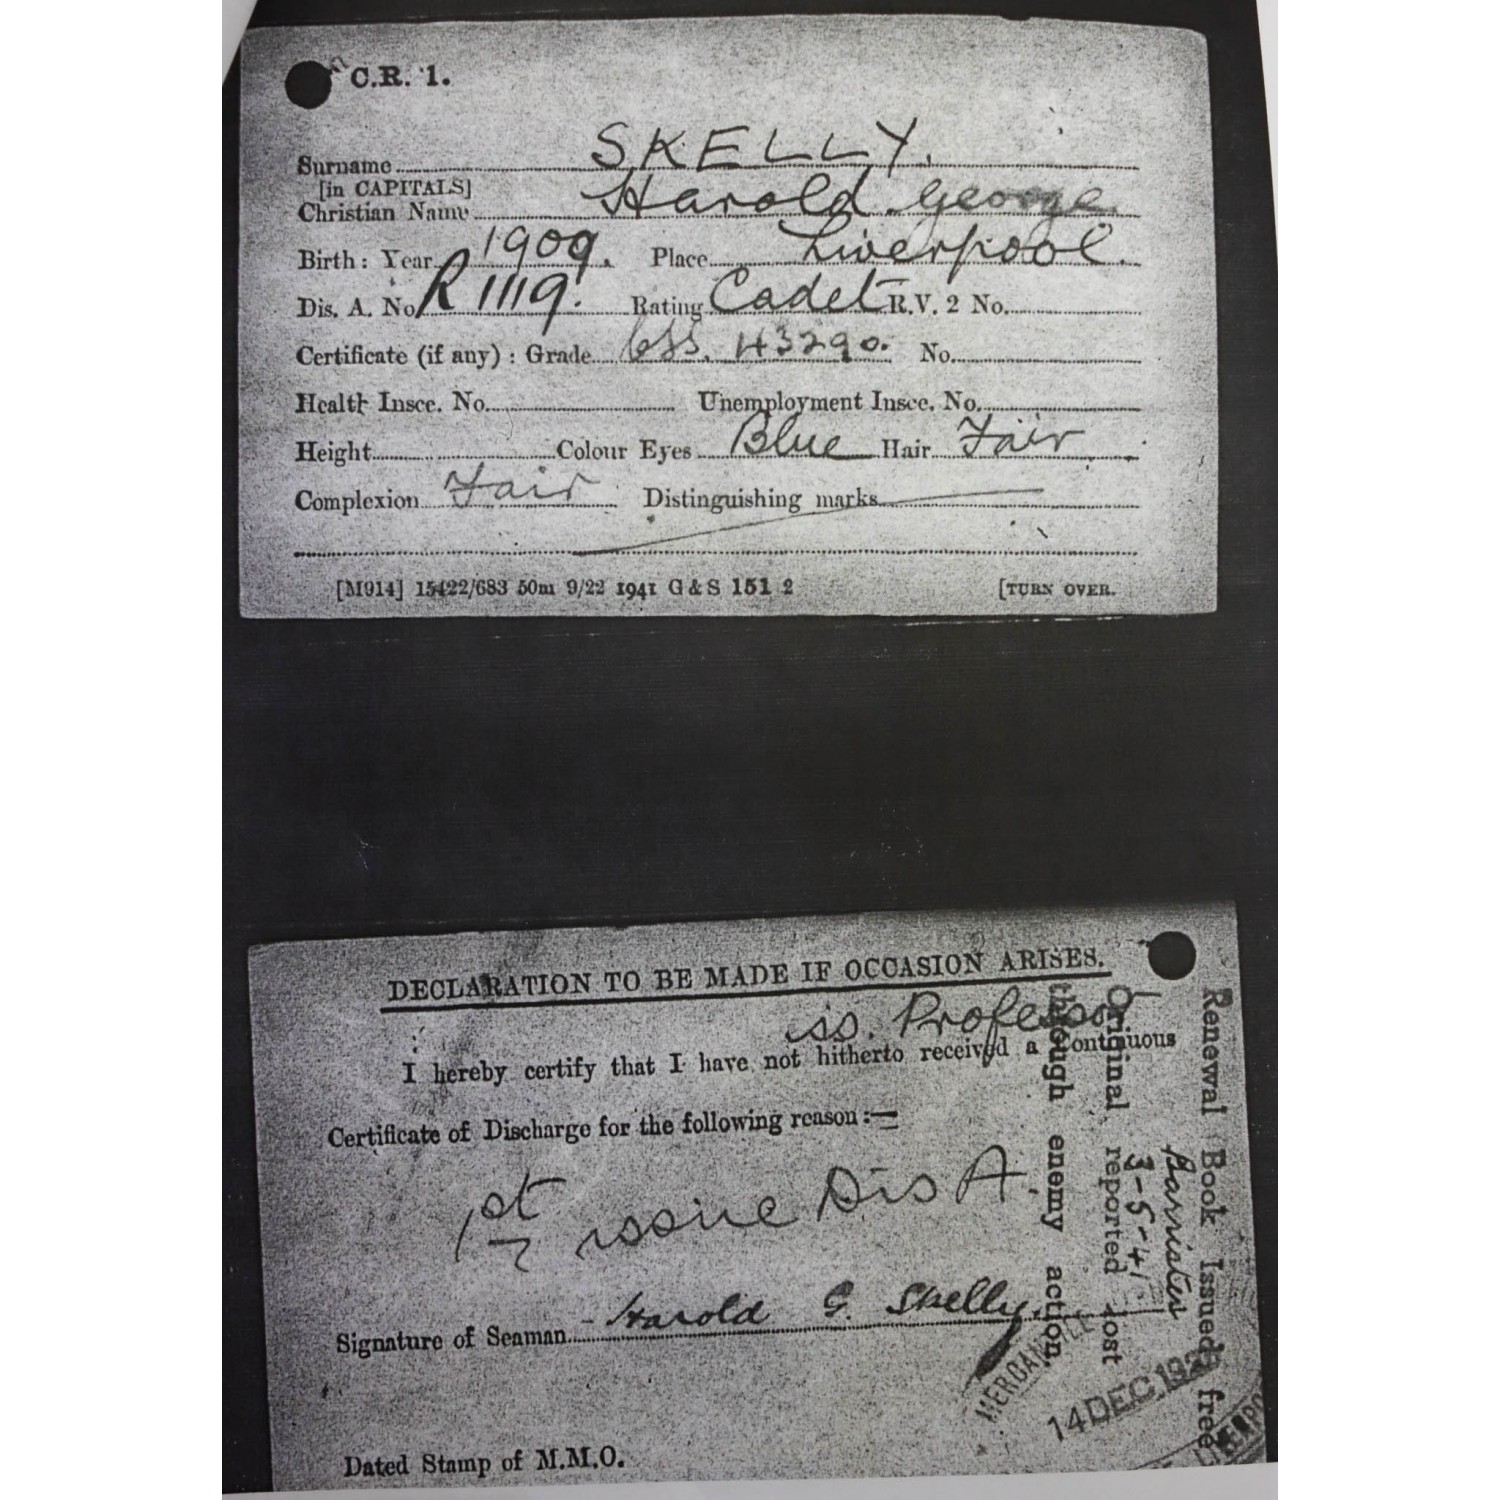 C.R. 1.
Surname SKELLY.
[in CAPITALS]
Christian Name Harold George
Birth: Year 1909. Place Liverpool.
Dis. A. No R 1119. Rating Cadet R.V. 2 No.
Certificate (if any) : Grade 43290. No.
Health Insce. No. Unemployment Insce. No.
Height Colour Eyes Blue Hair Fair
Complexion Fair Distinguishing marks
[M914] 15422/683 50m 9/22 1941 G & S 151 2 [TURN OVER.
DECLARATION TO BE MADE IF OCCASION ARISES.
ss. Professor
I hereby certify that I have not hitherto received a Continuous
Certificate of Discharge for the following reason :—
1st issue Dis A.
Signature of Seaman Harold G. Skelly
Dated Stamp of M.M.O.
Renewal Book Issued free
Barrister
3-5-41
Original reported lost
through enemy action.
MERCANTILE
14 DEC 192